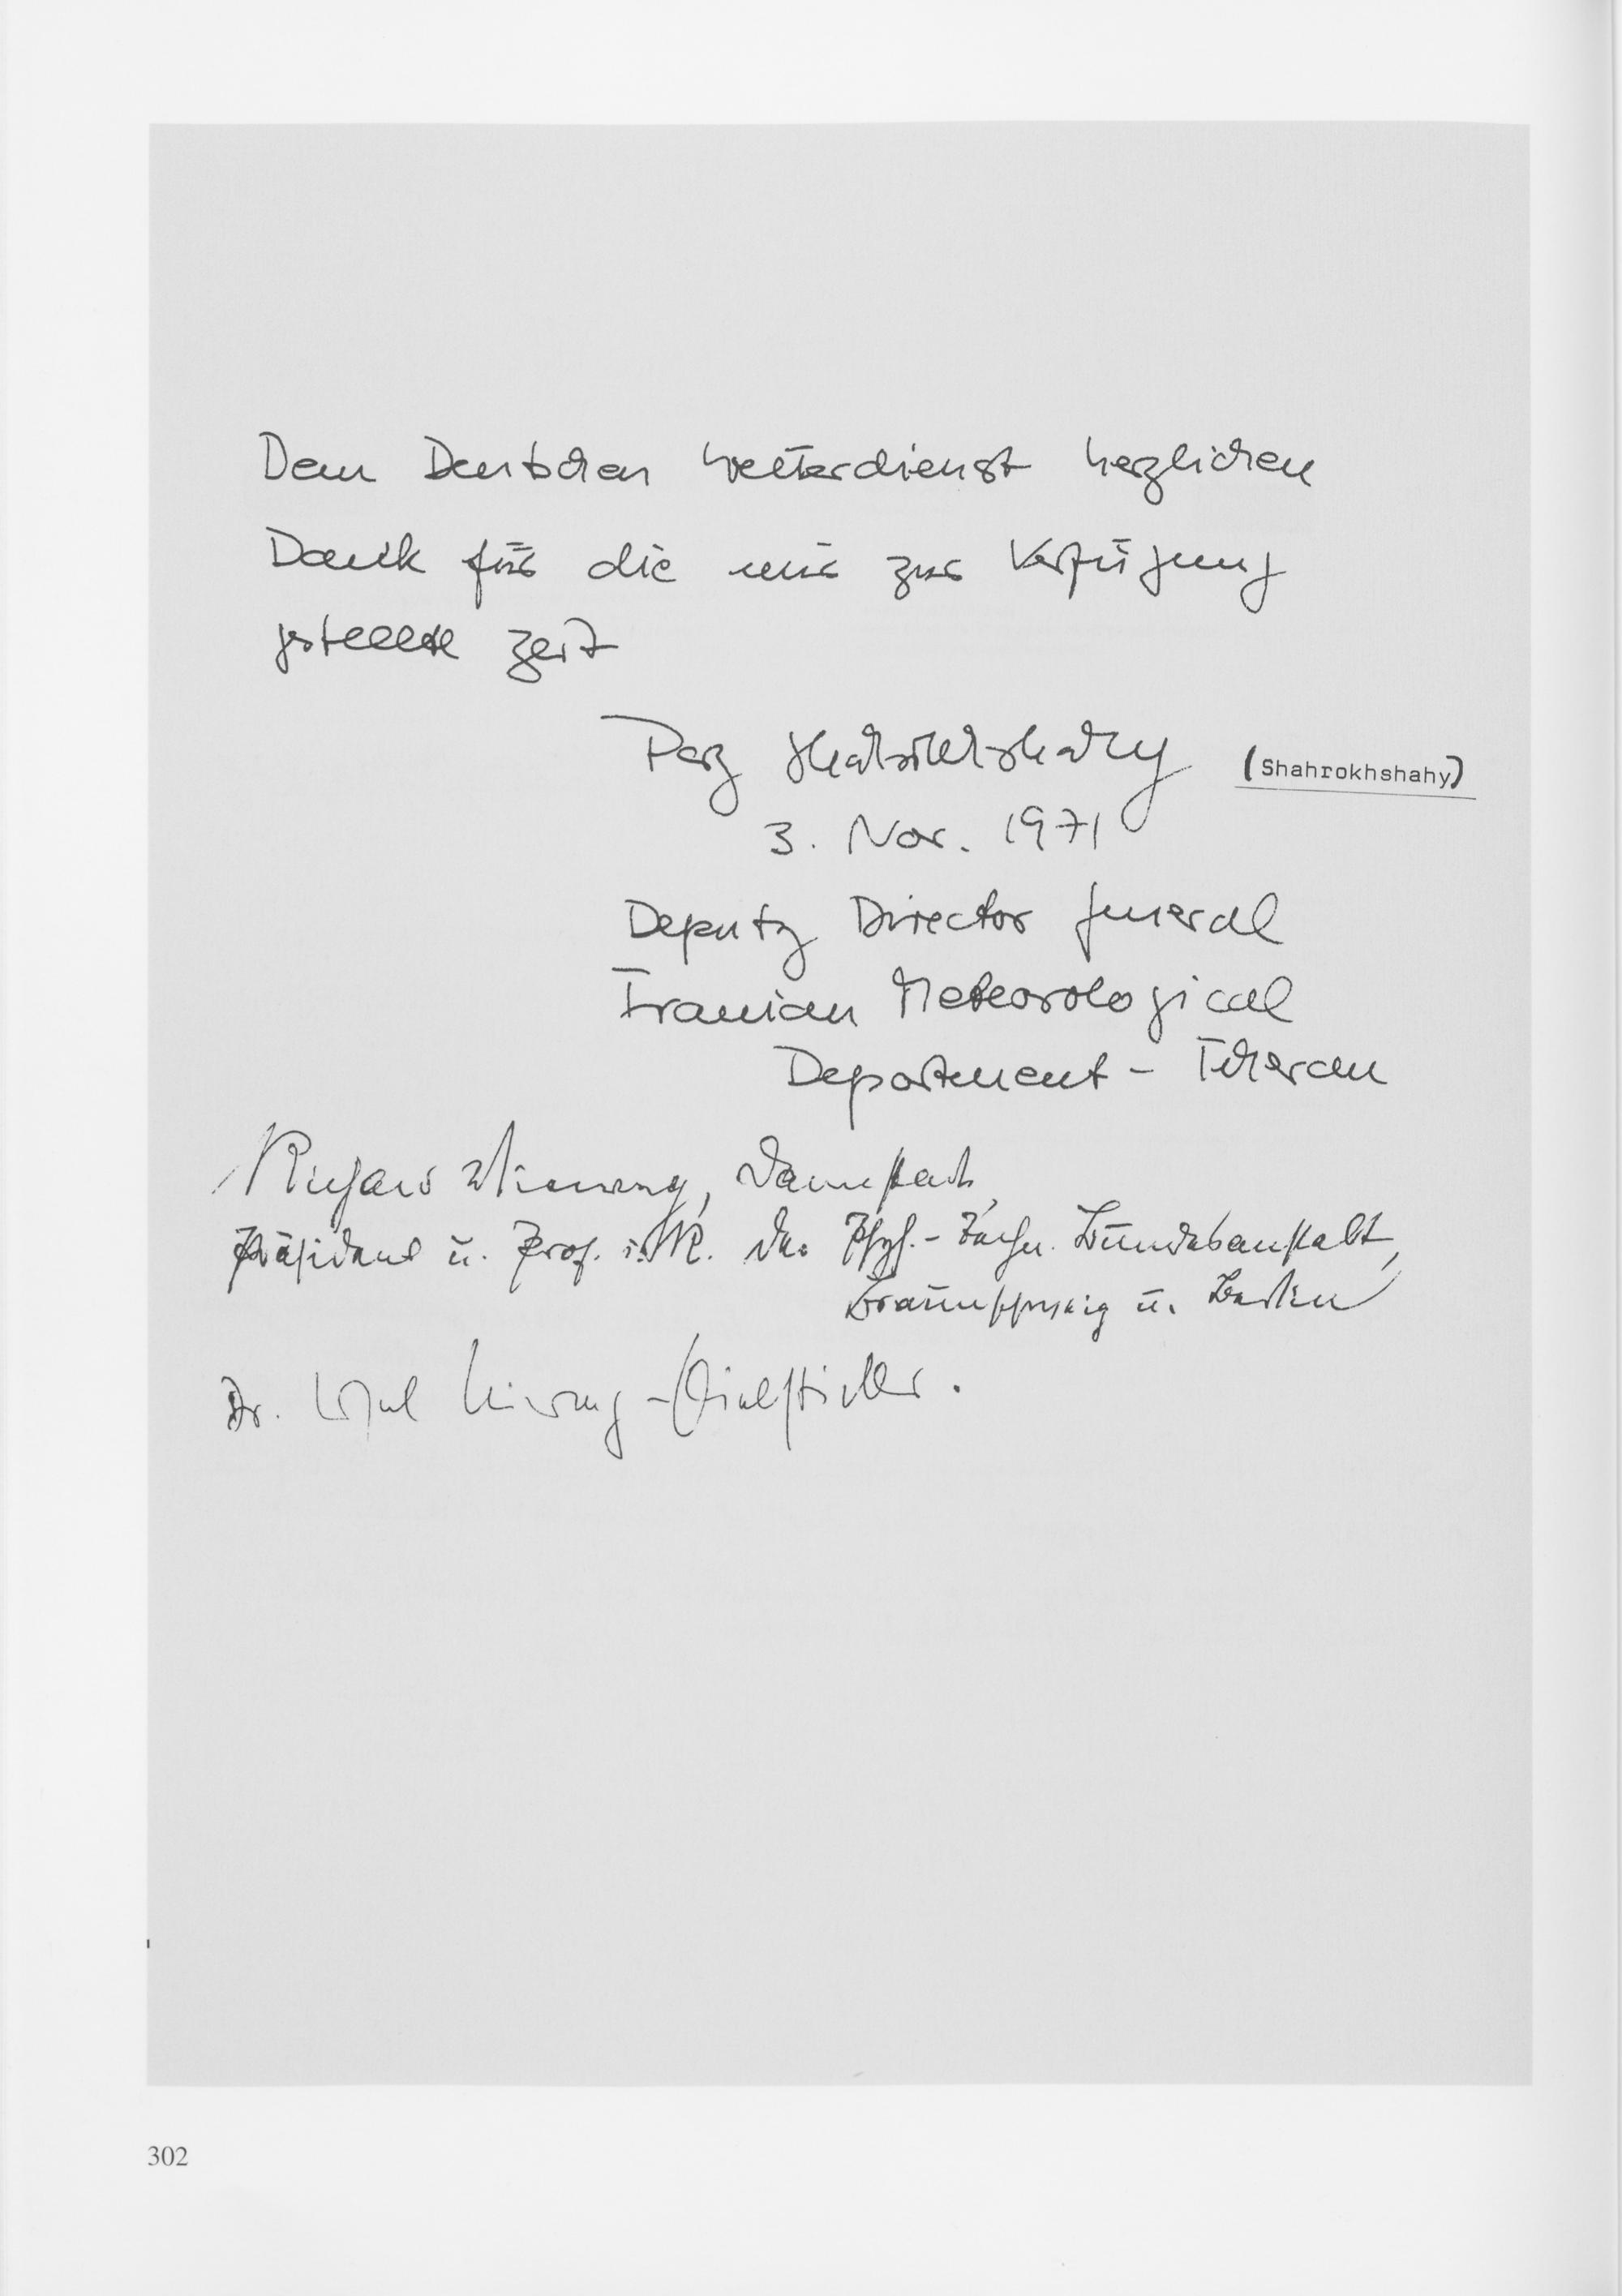 Dem Deutschen Wetterdienst herzlichen
Dank für die mir zur Verfügung
gestellte Zeit
Shahrokhshahy (Shahrokhshahy)
3. Nov. 1971
Deputy Director General
Iranian Meteorological
Department - Teheran
Richard Vieweg, Darmstadt
Präsident u. Prof. i. R. der Phys.-Techn. Bundesanstalt,
Braunschweig u. Berlin
Dr. Vieweg-
302